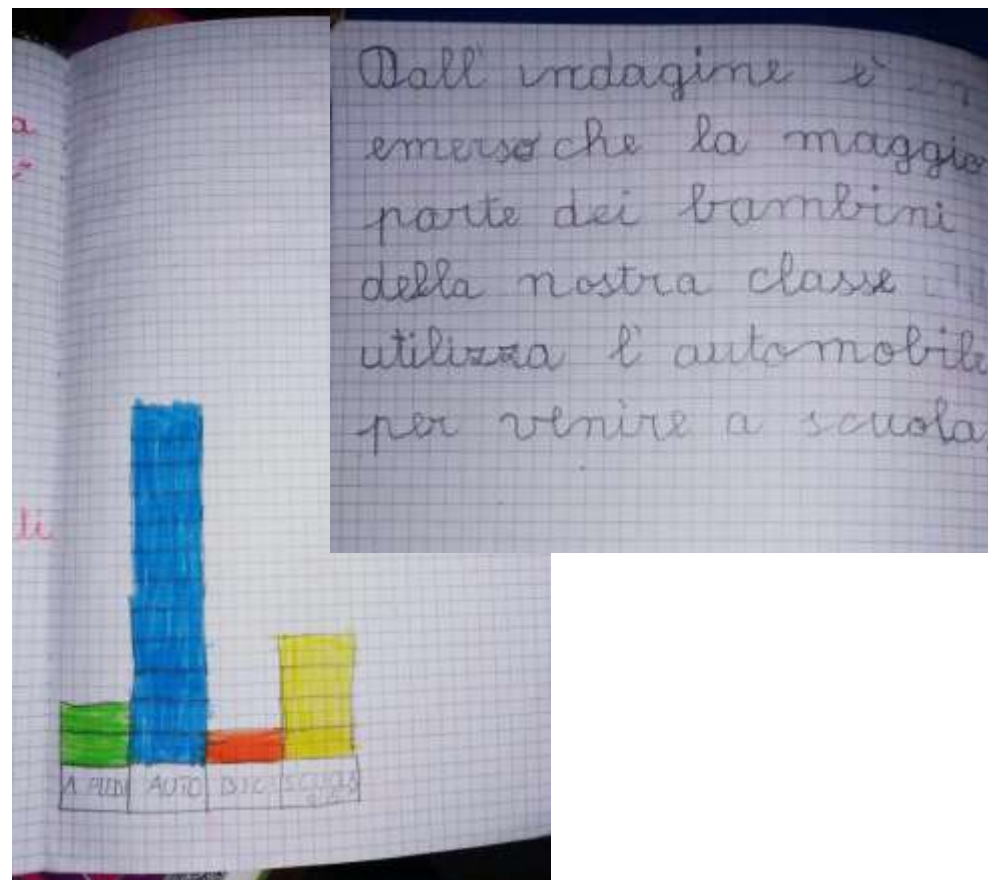 Dall' indagine è
emerso che la maggio
parte dei bambini
della nostra classe
utilizza l' automobile
per venire a scuola.
a
li
A PIEDI AUTO BICI SCUOLA